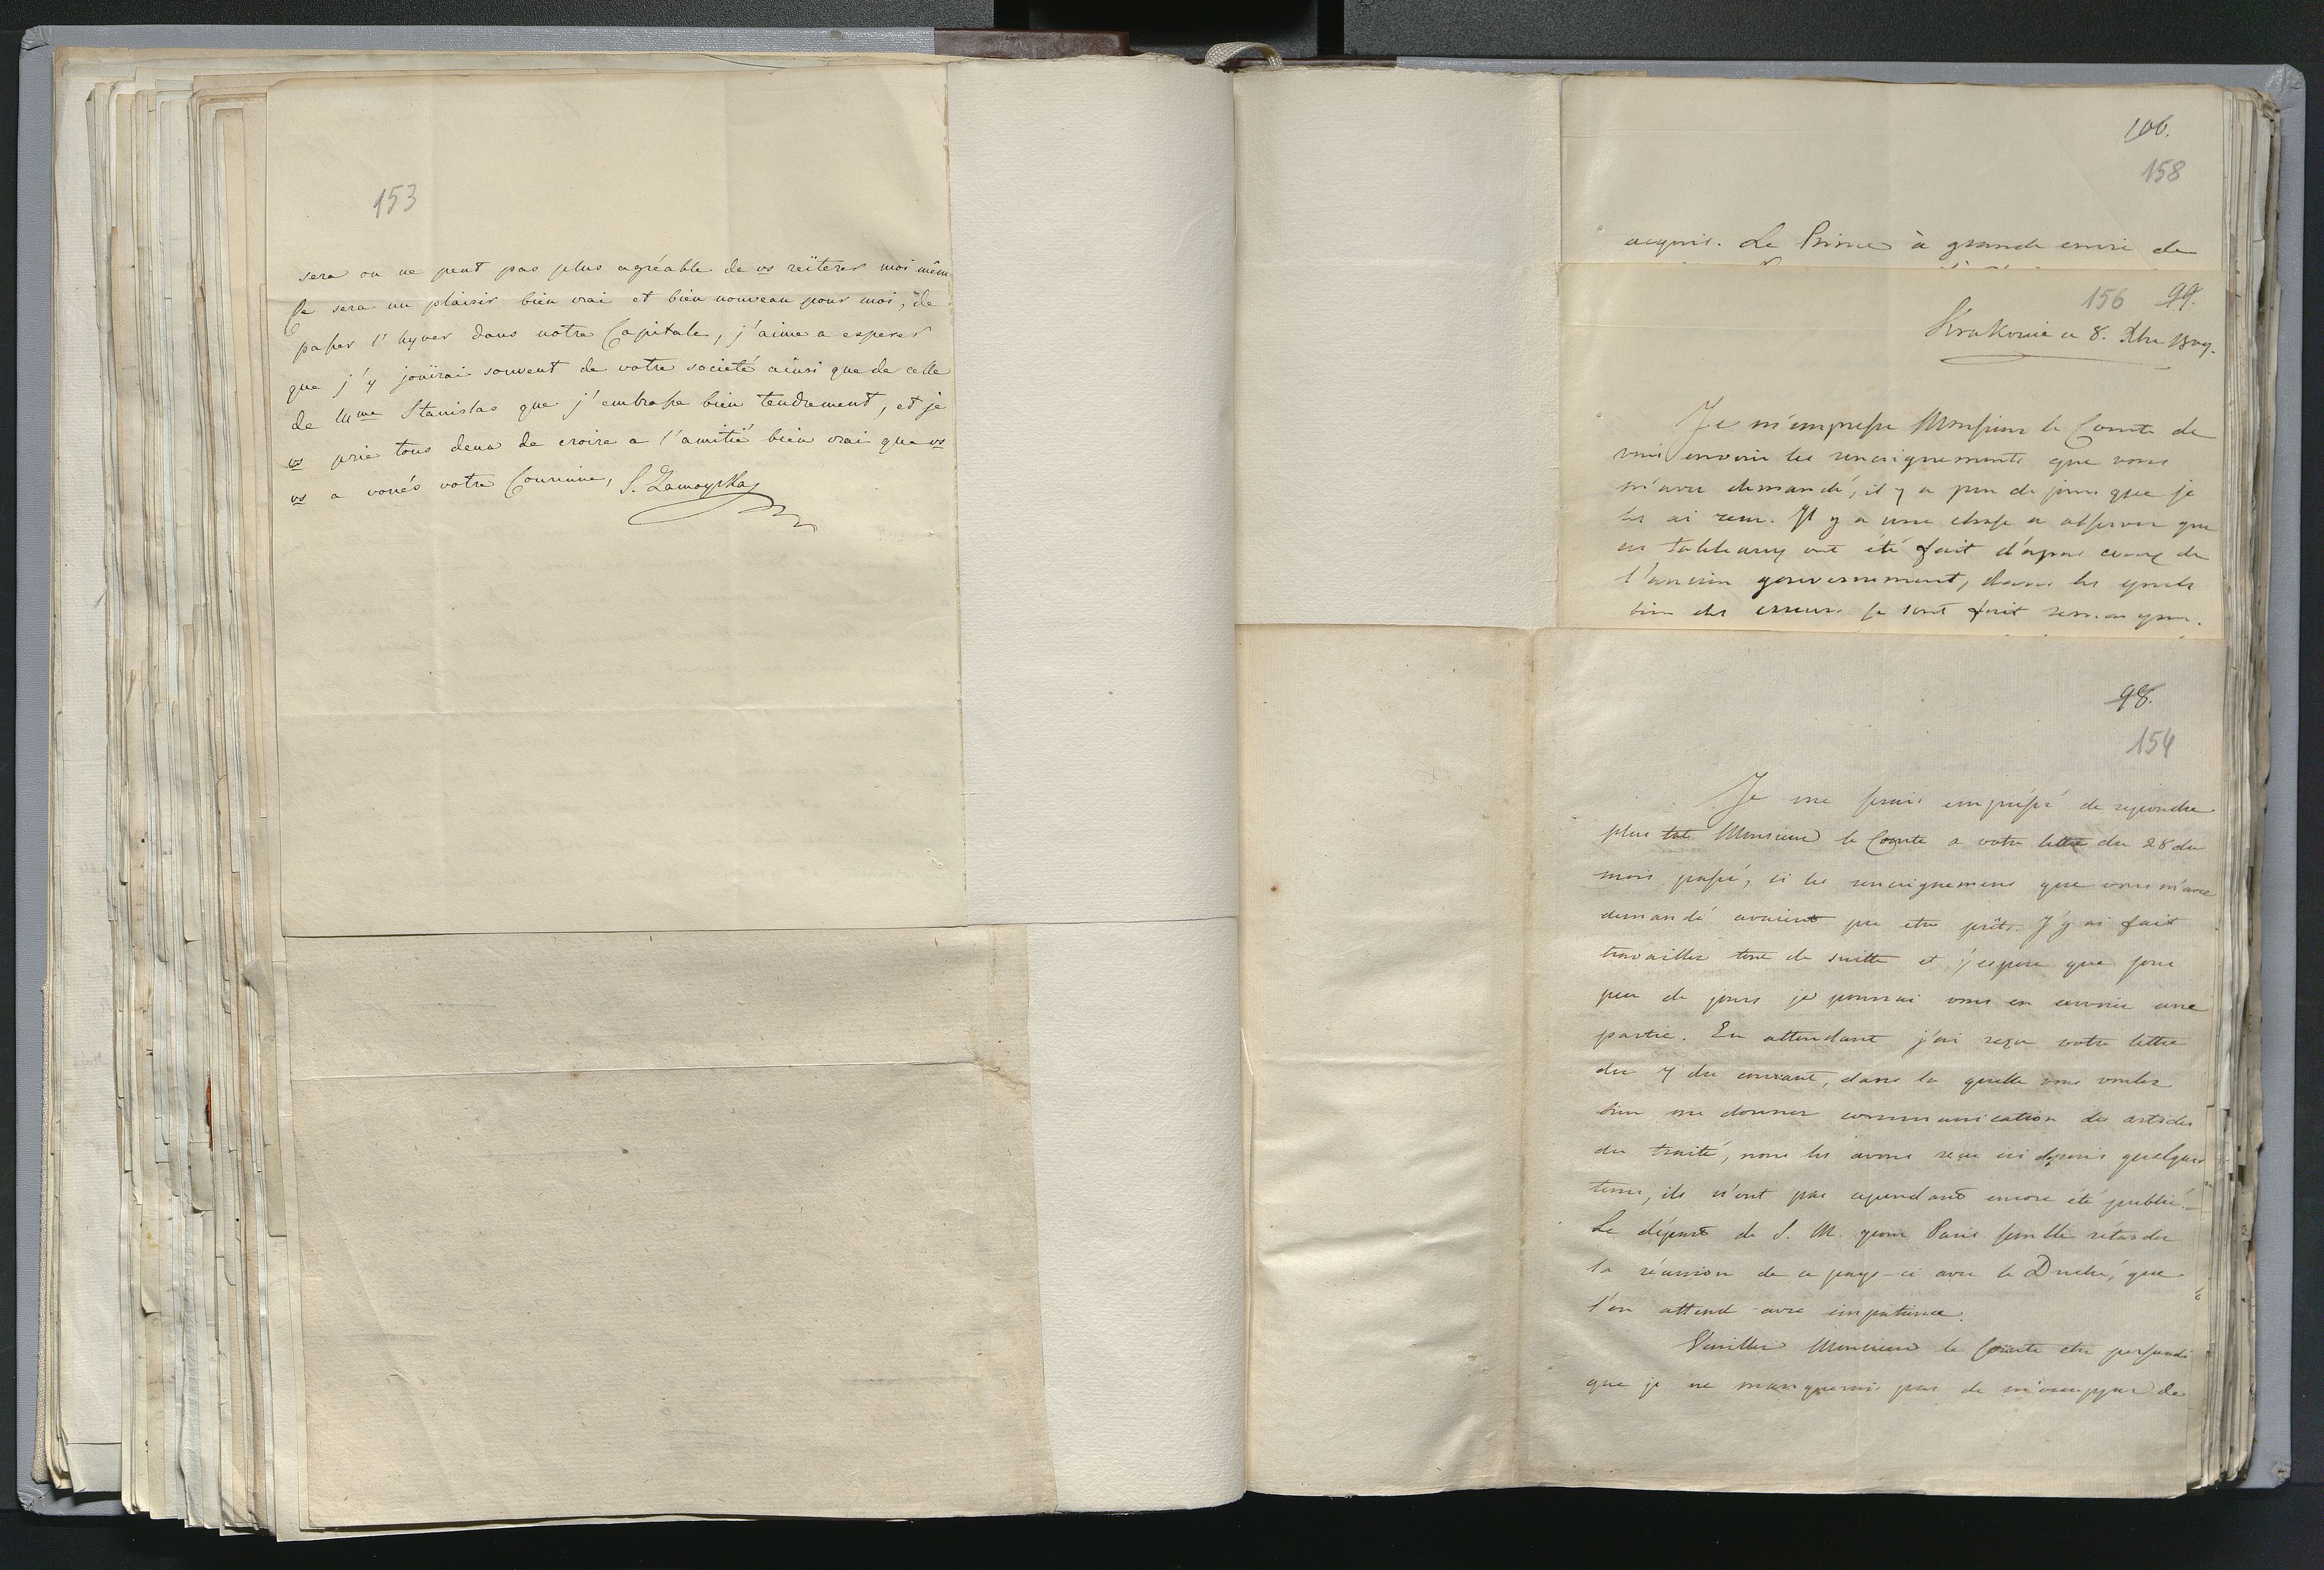 153
sera on ne peut pas plus agréable de vs réiterer moi même
Ce sera un plaisir bien vrai et bien nouveau pour moi, de
passer l'hyver dans notre Capitale, j'aime a esperer
que j'y jouirai souvent de votre societé ainsi que de celle
de Mme Stanislas que j'embrasse bien tendrement, et je
vs prie tous deux de croire a l'amitié bien vrai que vs
vs a voués votre Cousine, S. Zamoyska
100.
158
acquis. Le Prince à grande envie de
156 99.
Krakovie ce 8. Xbre 1809.
Je m'empresse Monsieur le Comte de
vous envoier les renseignements que vous
m'avez demandé, il y a peu de jours que je
les ai reçu. Il y a une chose a observer que
ces tableaux ont été fait d'apres ceux de
l'ancien gouvernement, dans les quels
bien des erreurs se sont fait remarquer.
98.
154
Je me serais empressé de repondre
plus tot Monsieur le Comte a votre lettre du 28 du
mois passé, si les renseignemens que vous m'avez
demandé avaient pu etre prêts. J'y ai fait
travailler tout de suitte et j'espere que sous
peu de jours je pourrai vous en envoier une
partie. En attendant j'ai reçu votre lettre
du 7 du courant, dans la quelle vous voulez
bien me donner communication des articles
du traité, nous les avons reçu ici depuis quelques
tems, ils n'ont pas cependant encore été publié.
Le départ de S. M. pour Paris semble retarder
la réunion de ce pays-ci avec le Duché, que
l'on attend avec impatience.
Veuillez Monsieur le Comte etre persuadé
que je ne manquerais pas de m'occupper de